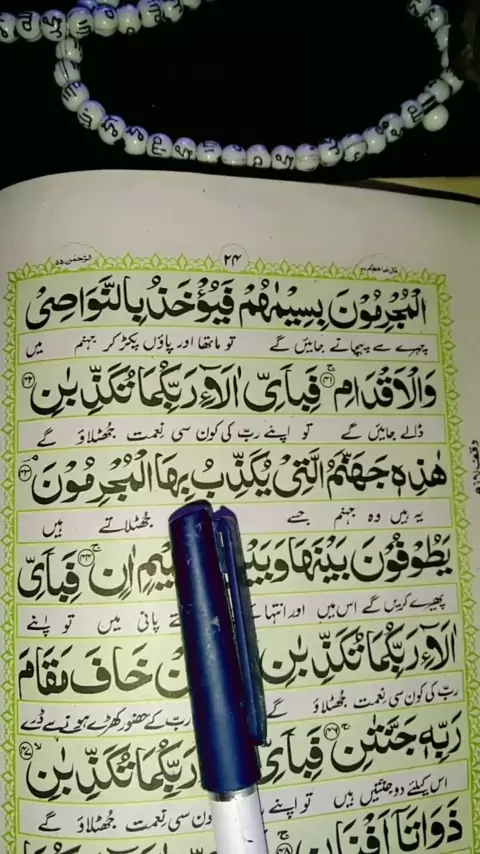 الرحمٰن ٥٥
٢٤
قال فما خطبكم ٢٧
الْمُجْرِمُوْنَ بِسِيْمٰىهُمْ فَيُؤْخَذُ بِالنَّوَاصِيْ
چہرے سے پہچانے جائیں گے تو ماتھا اور پاؤں پکڑ کر جہنم میں
وَالْاَقْدَامِ ۚ﴿۴۱﴾ فَبِاَيِّ اٰلَآءِ رَبِّكُمَا تُكَذِّبٰنِ ﴿۴۲﴾
ڈالے جائیں گے تو اپنے رب کی کون سی نعمت جھٹلاؤ گے
هٰذِهٖ جَهَنَّمُ الَّتِيْ يُكَذِّبُ بِهَا الْمُجْرِمُوْنَ ﴿۴۳﴾
یہ ہیں وہ جہنم جسے جھٹلاتے ہیں
يَطُوْفُوْنَ بَيْنَهَا وَبَيْ يْمٍ اٰنٍ ﴿۴۴﴾ فَبِاَيِّ
پھیرے کریں گے اس میں اور انتہا تے پانی میں تو اپنے
اٰلَآءِ رَبِّكُمَا تُكَذِّبٰنِ نْ خَافَ مَقَامَ
رب کی کون سی نعمت جھٹلاؤ گے رب کے حضور کھڑے ہونے سے ڈرے
رَبِّهٖ جَنَّتٰنِ ﴿۴۶﴾ فَبِاَيِّ رَبِّكُمَا تُكَذِّبٰنِ ﴿۴۷﴾
اس کیلئے دو جنتیں ہیں تو اپنے ون سی نعمت جھٹلاؤ گے
ذَوَاتَآ اَفْنَانٍ ﴿۴۸﴾